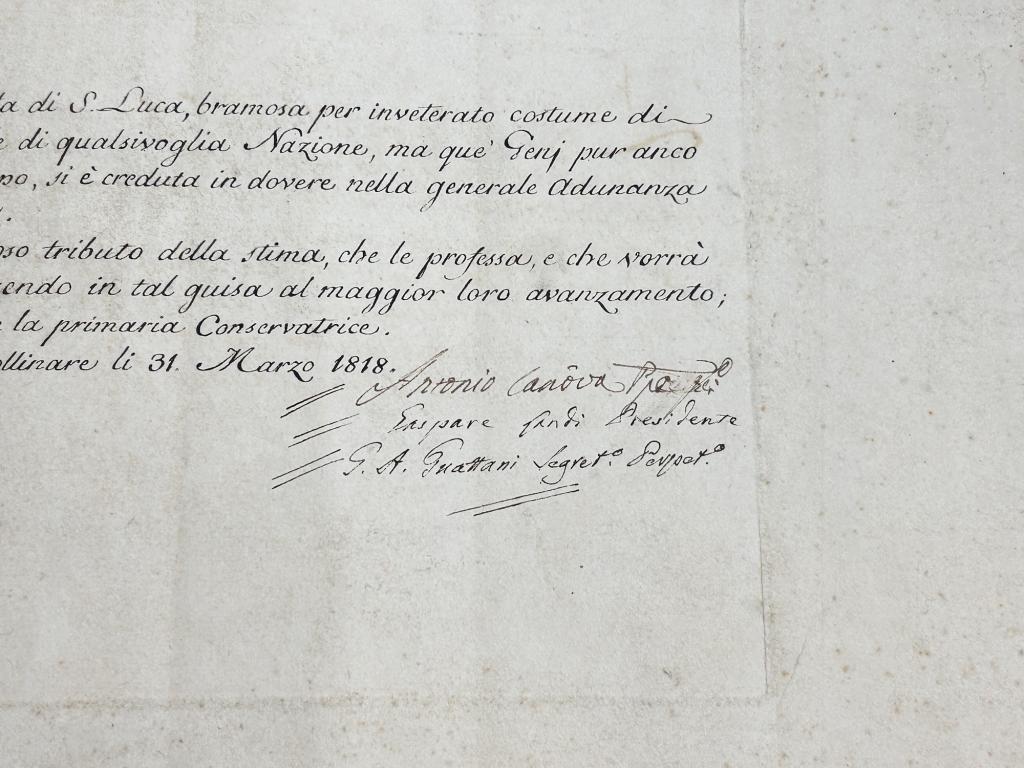 la di S. Luca, bramosa per inveterato costume di
e di qualsivoglia Nazione, ma que' Genj pur anco
no, si è creduta in dovere nella generale Adunanza
oso tributo della stima, che le professa, e che vorrà
endo in tal guisa al maggior loro avanzamento;
la primaria Conservatrice.
ollinare li 31. Marzo 1818.
Antonio Canova
Gaspare Landi Presidente
G. A. Guattani Segret.º Perpet.º